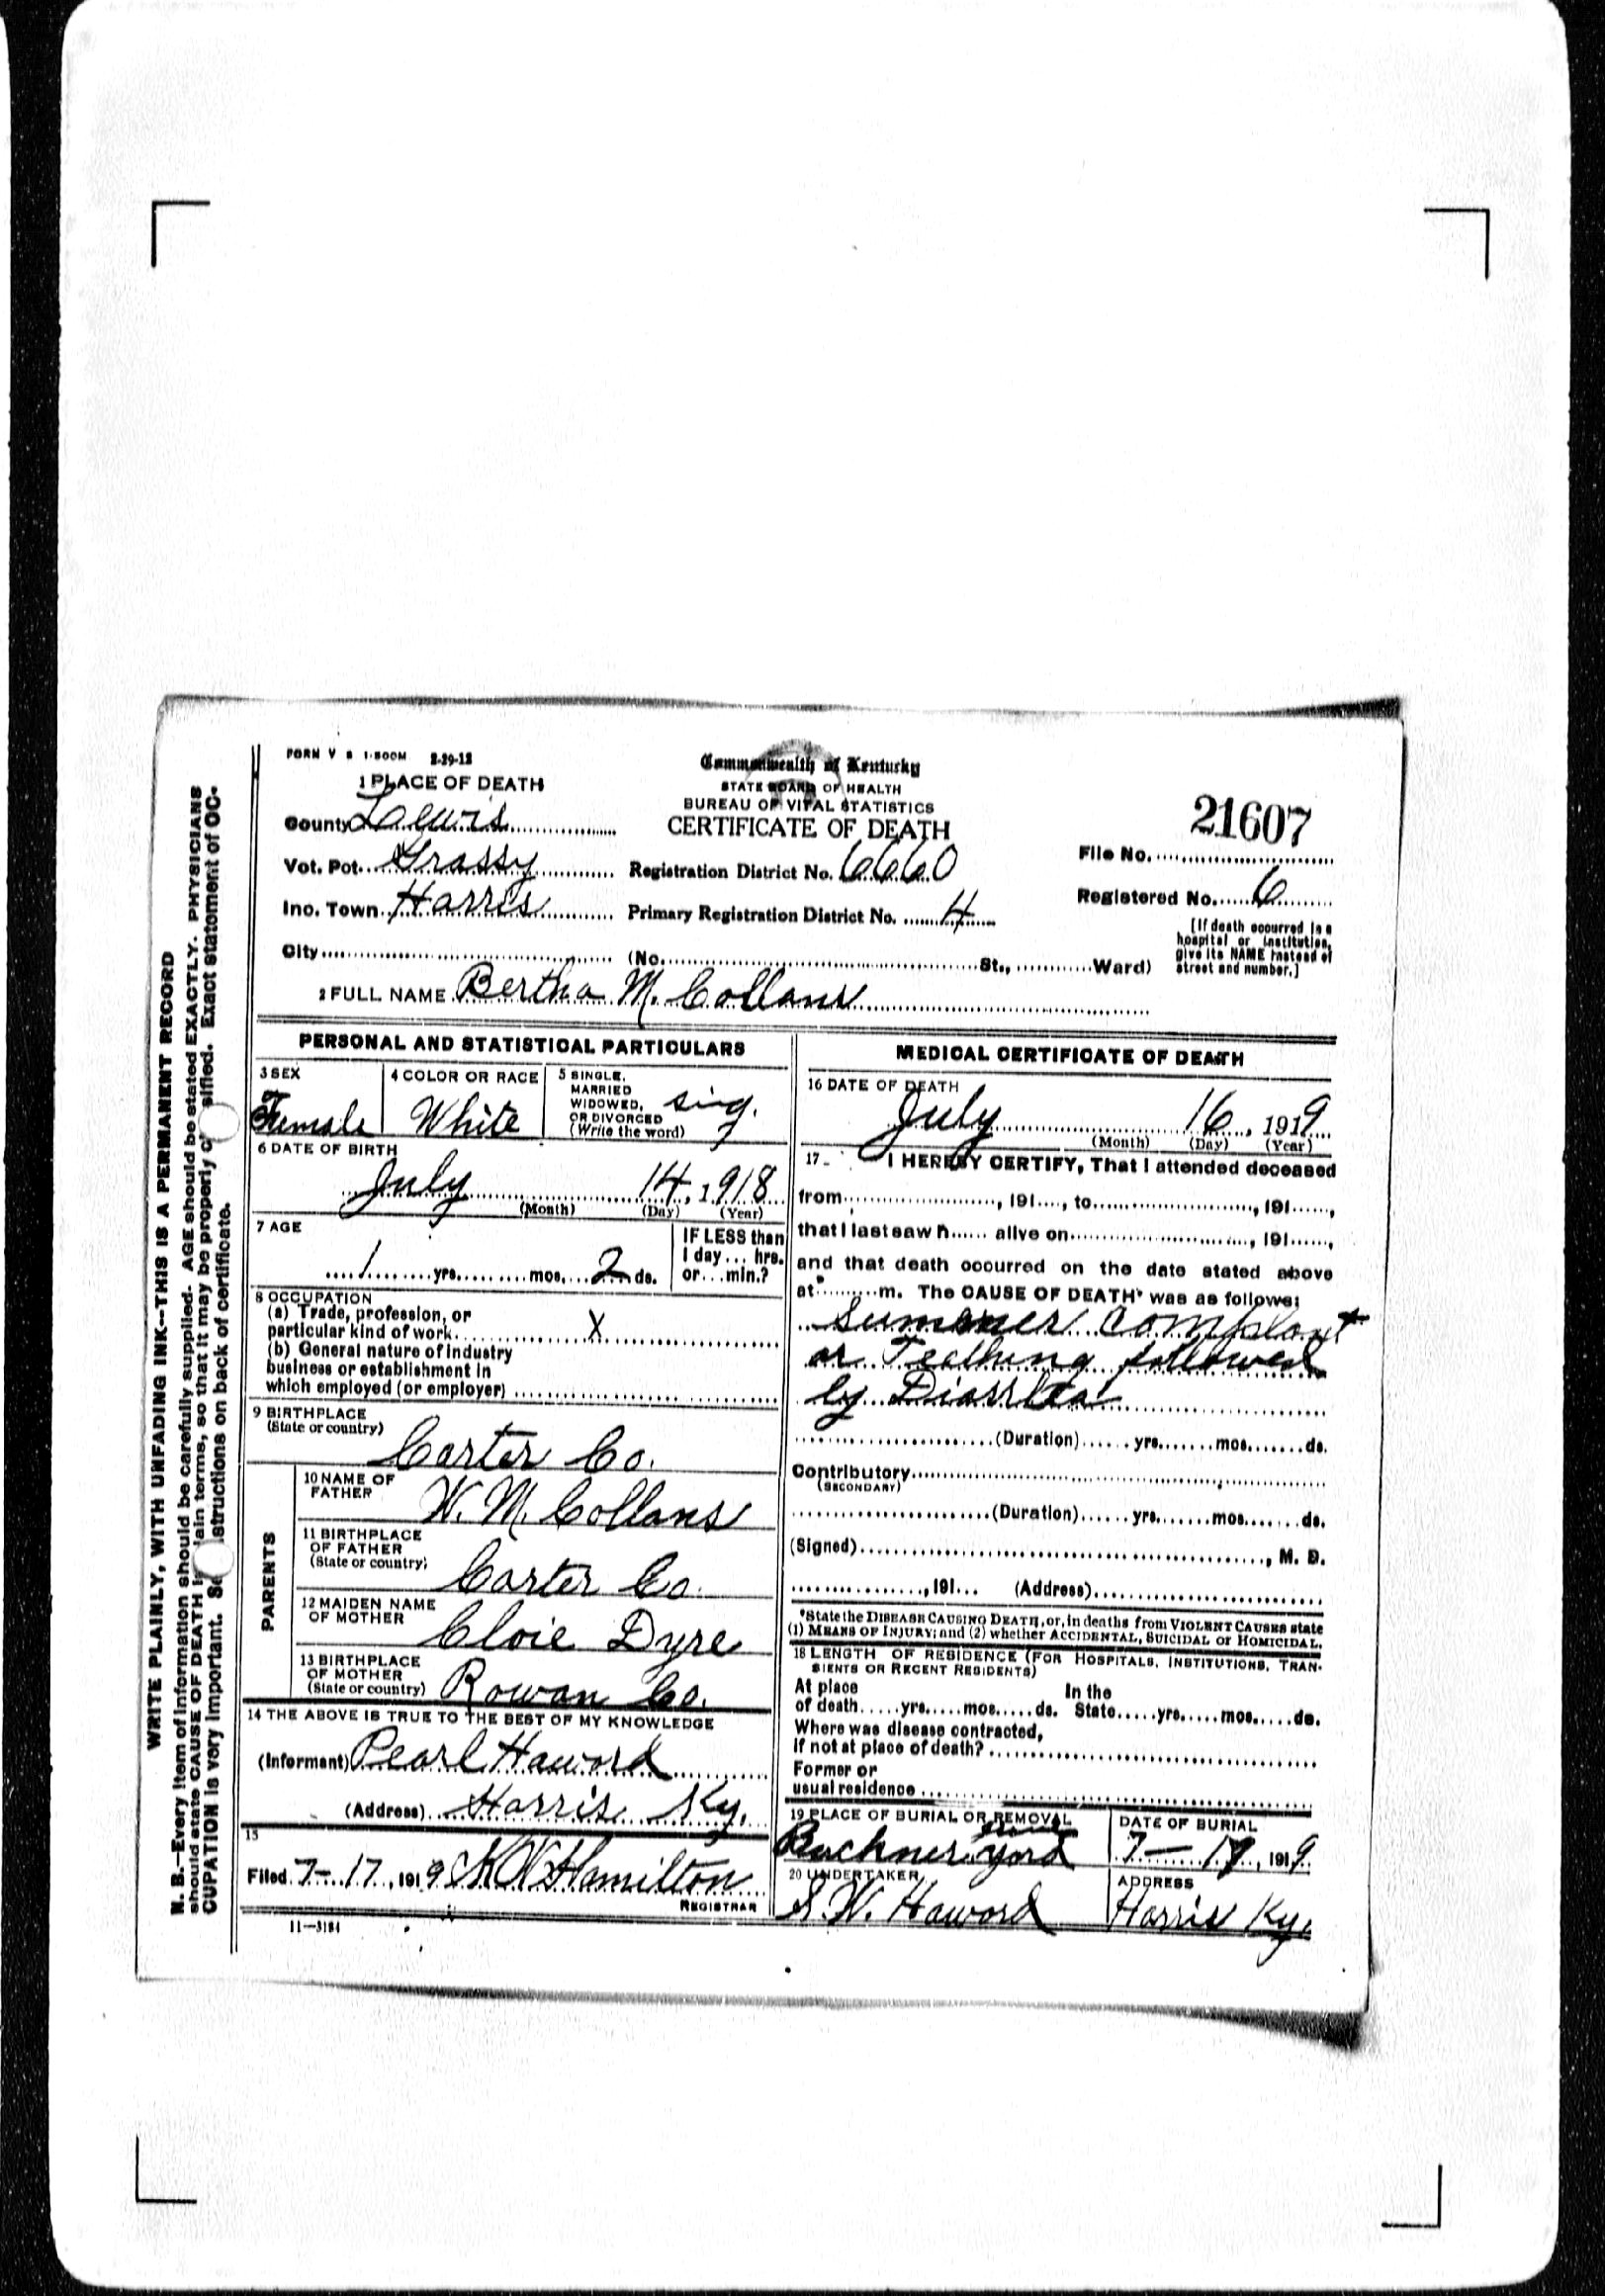 FORM V S 1-500M 2-29-12
Commonwealth of Kentucky
STATE BOARD OF HEALTH
BUREAU OF VITAL STATISTICS
CERTIFICATE OF DEATH
1 PLACE OF DEATH
County Lewis
Vot. Pct. Grassy
Inc. Town Harris
City (No. St., Ward)
Registration District No. 6660
Primary Registration District No. 4
21607
File No.
Registered No. 6
[If death occurred in a
hospital or institution,
give its NAME instead of
street and number.]
2 FULL NAME Bertha M. Collans
PERSONAL AND STATISTICAL PARTICULARS
3 SEX
Female
4 COLOR OR RACE
White
5 SINGLE,
MARRIED
WIDOWED,
OR DIVORCED
(Write the word)
sing.
6 DATE OF BIRTH
July 14, 1918
(Month) (Day) (Year)
7 AGE
1 yrs. mos. 2 ds.
IF LESS than
1 day ... hrs.
or ... min.?
8 OCCUPATION
(a) Trade, profession, or
particular kind of work X
(b) General nature of industry
business or establishment in
which employed (or employer)
9 BIRTHPLACE
(State or country)
Carter Co.
PARENTS
10 NAME OF
FATHER
W. M. Collans
11 BIRTHPLACE
OF FATHER
(State or country)
Carter Co.
12 MAIDEN NAME
OF MOTHER
Cloie Dyre
13 BIRTHPLACE
OF MOTHER
(State or country)
Rowan Co.
14 THE ABOVE IS TRUE TO THE BEST OF MY KNOWLEDGE
(Informant) Pearl Haword
(Address) Harris Ky.
15
Filed 7-17, 1919 Hamilton
REGISTRAR
11-3184
MEDICAL CERTIFICATE OF DEATH
16 DATE OF DEATH
July 16, 1919
(Month) (Day) (Year)
17 I HEREBY CERTIFY, That I attended deceased
from , 191 , to , 191 ,
that I last saw h alive on , 191 ,
and that death occurred on the date stated above
at m. The CAUSE OF DEATH* was as follows:
Summer complant
or Teathing followed
by Diarrhea
(Duration) yrs. mos. ds.
Contributory
(SECONDARY)
(Duration) yrs. mos. ds.
(Signed) , M. D.
, 191 (Address)
*State the DISEASE CAUSING DEATH, or, in deaths from VIOLENT CAUSES state
(1) MEANS OF INJURY; and (2) whether ACCIDENTAL, SUICIDAL or HOMICIDAL.
18 LENGTH OF RESIDENCE (FOR HOSPITALS, INSTITUTIONS, TRAN-
SIENTS OR RECENT RESIDENTS)
At place In the
of death yrs. mos. ds. State yrs. mos. ds.
Where was disease contracted,
if not at place of death?
Former or
usual residence
19 PLACE OF BURIAL OR REMOVAL
Buckner yord
DATE OF BURIAL
7-17, 1919
20 UNDERTAKER
S. W. Haword
ADDRESS
Harris Ky.
WRITE PLAINLY, WITH UNFADING INK--THIS IS A PERMANENT RECORD
N. B.--Every item of information should be carefully supplied. AGE should be stated EXACTLY. PHYSICIANS
should state CAUSE OF DEATH in plain terms, so that it may be properly classified. Exact statement of OC-
CUPATION is very important. See instructions on back of certificate.